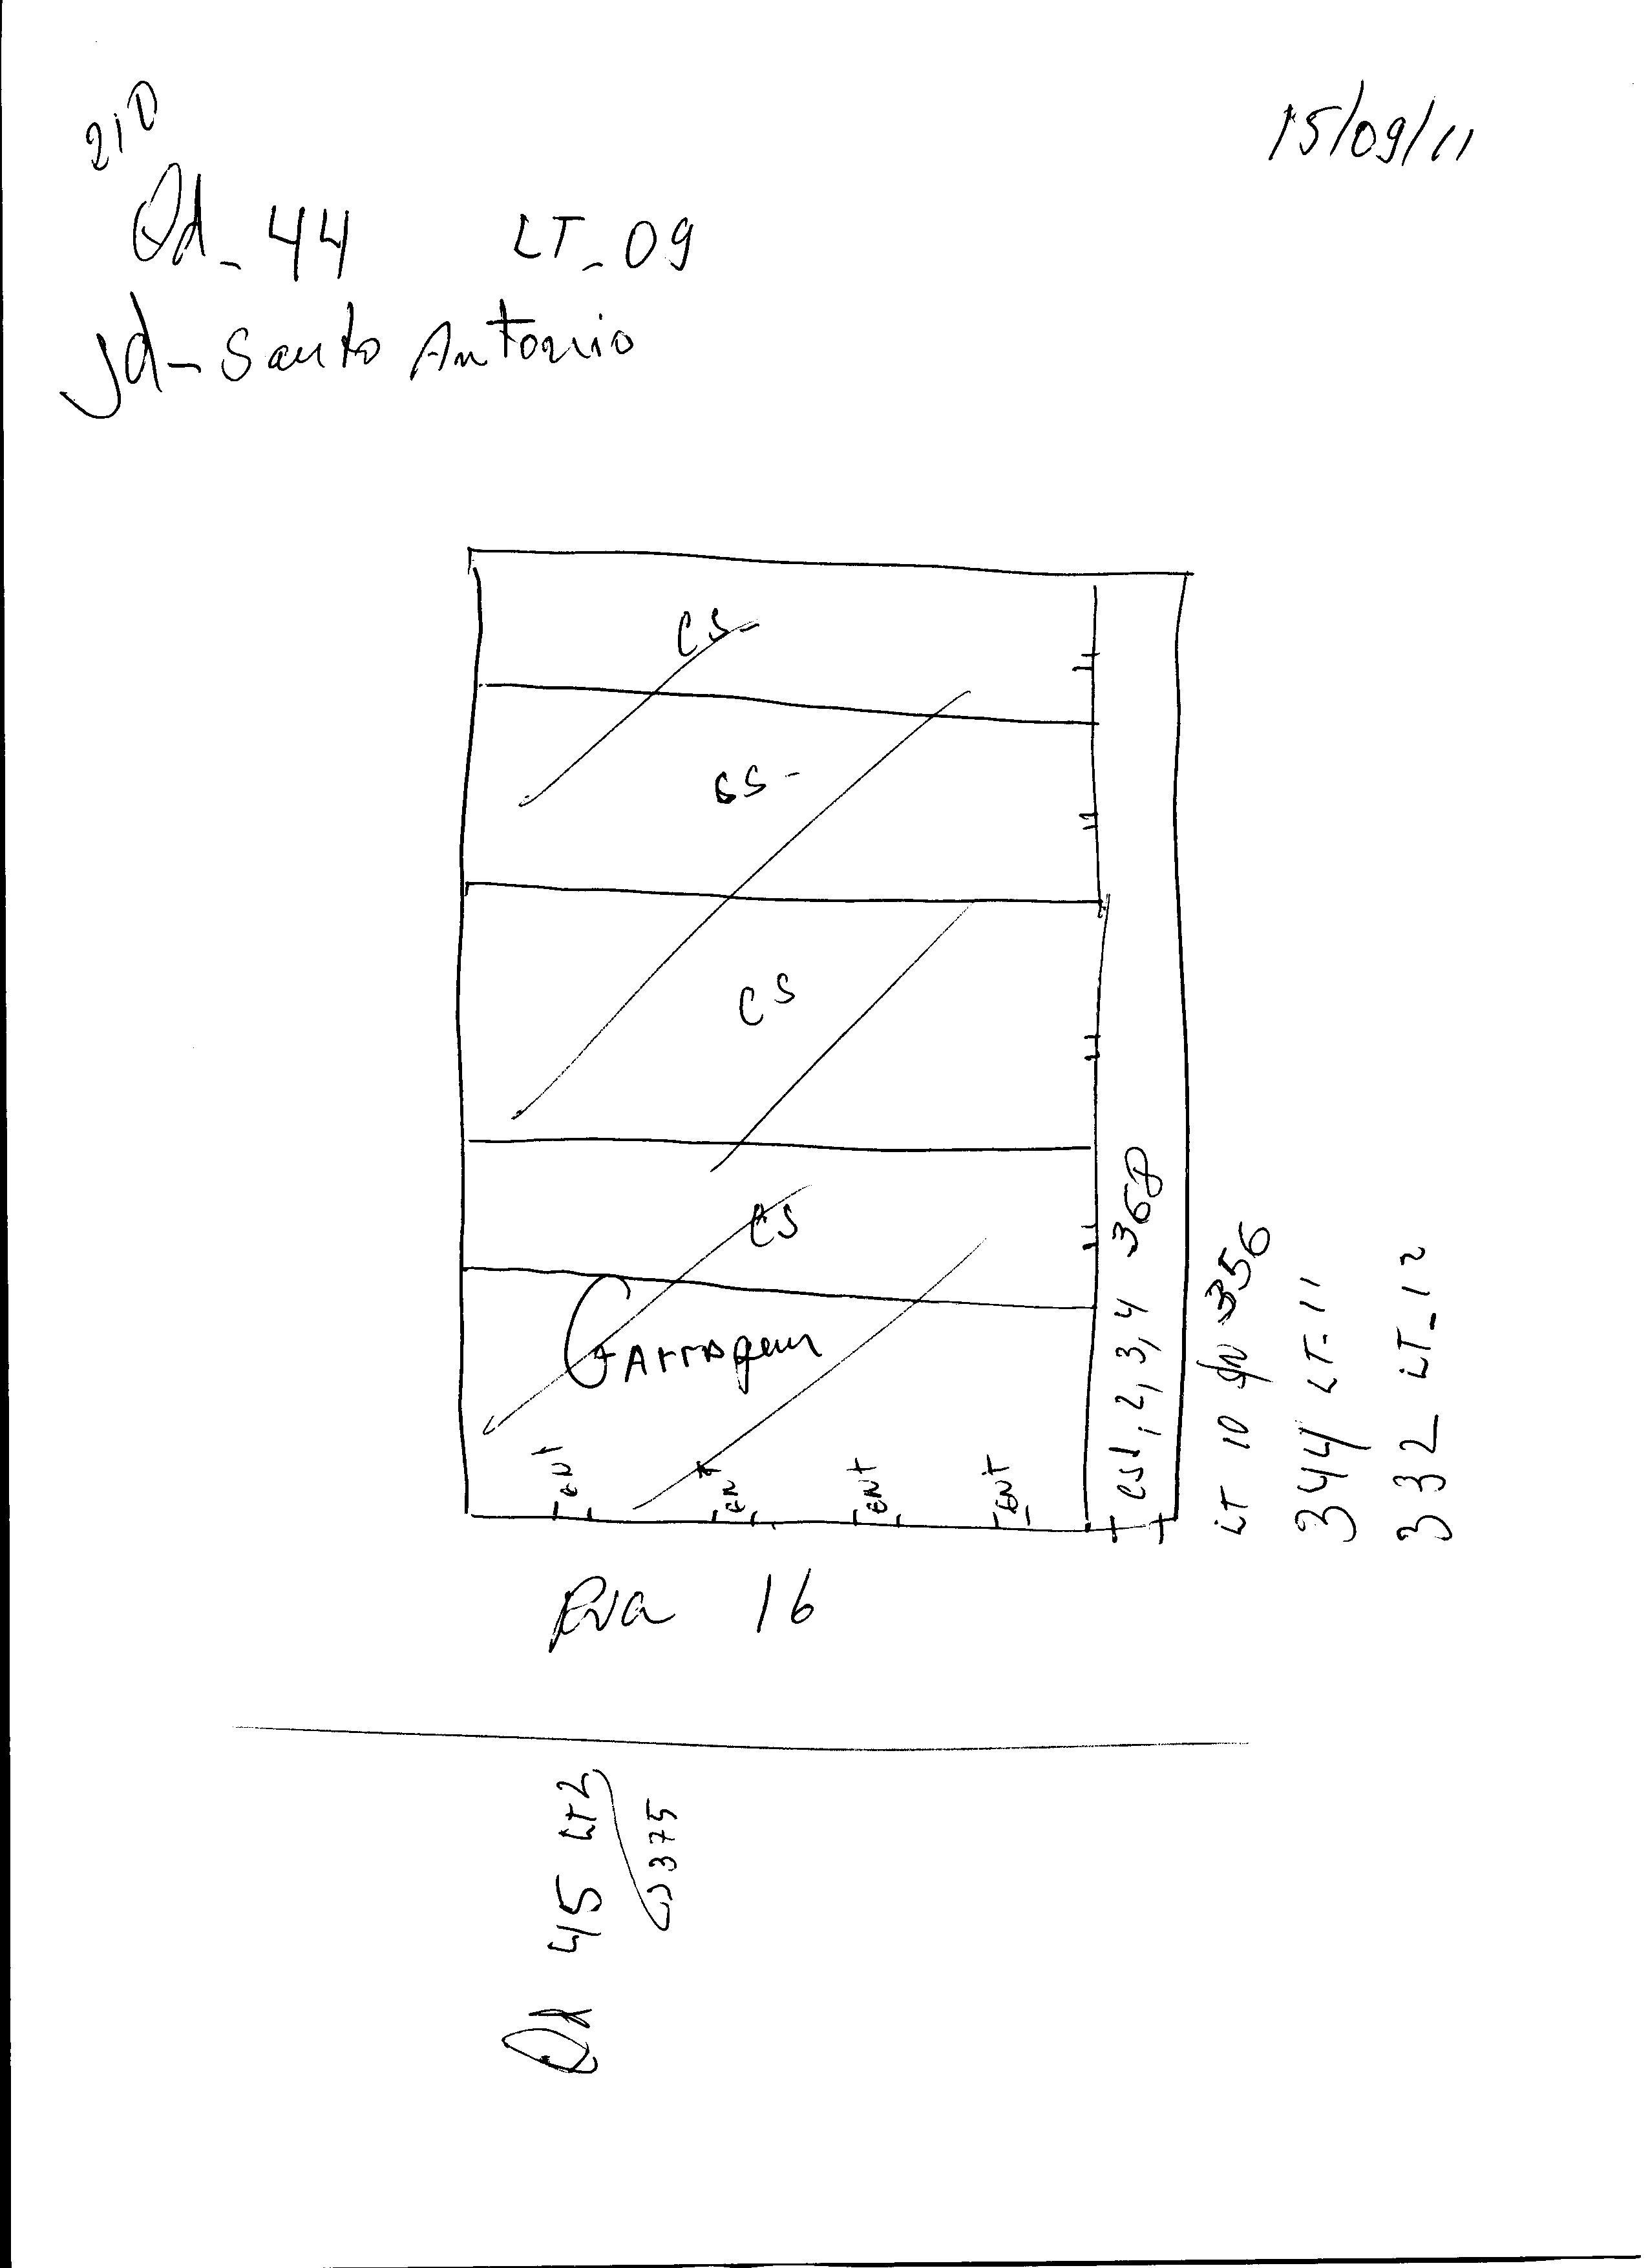 210
15/09/11
Qd_44 LT_09
Jd_Santo Antonio
CS-
SS-
CS
CS
Garragem
ENT
ENT
ENT
ENT
CS 1, 2, 3, 4 368
LT 10 356
344 LT-11
332 LT_12
Rua 16
Qd 45 LT2
375